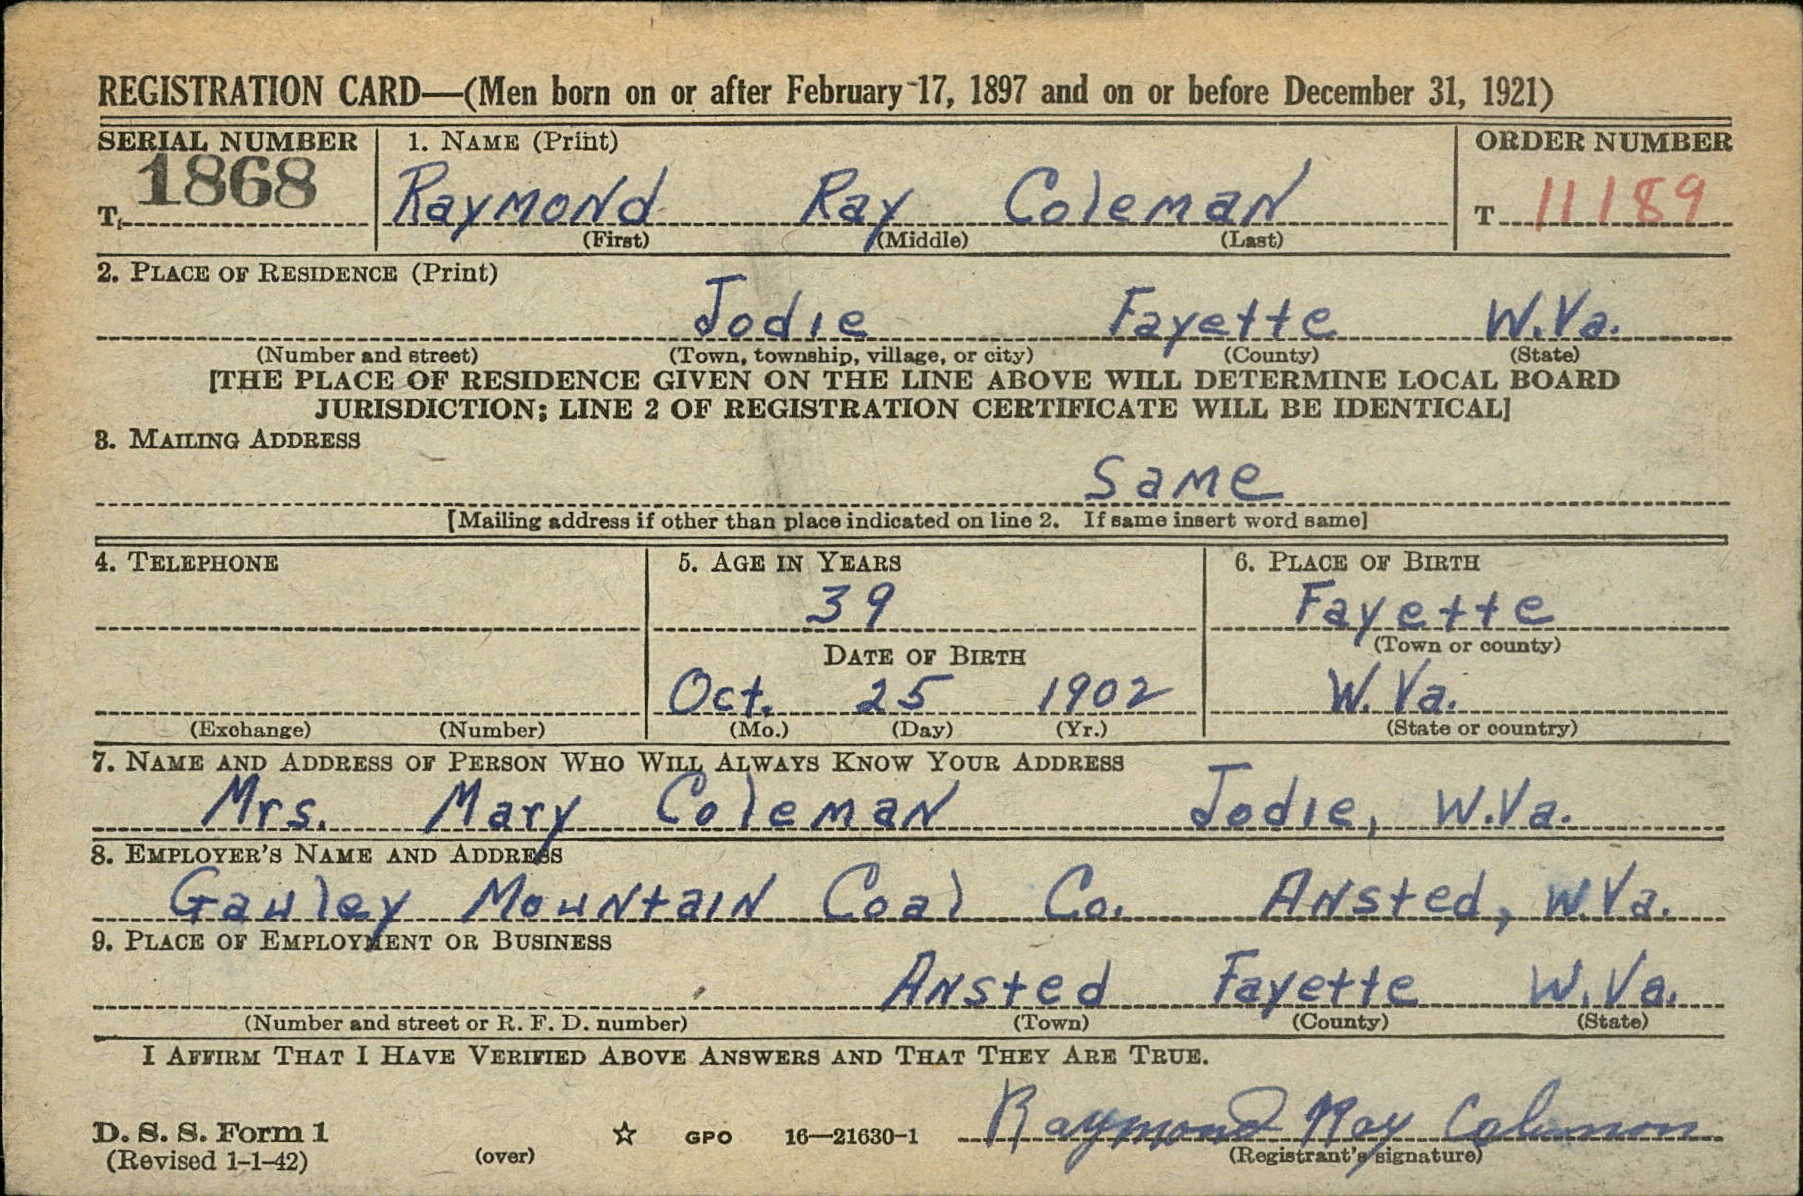 REGISTRATION CARD—(Men born on or after February 17, 1897 and on or before December 31, 1921)
SERIAL NUMBER 1. NAME (Print) ORDER NUMBER
T 1868 Raymond Ray Coleman T 11189
(First) (Middle) (Last)
2. PLACE OF RESIDENCE (Print)
Jodie Fayette W.Va.
(Number and street) (Town, township, village, or city) (County) (State)
[THE PLACE OF RESIDENCE GIVEN ON THE LINE ABOVE WILL DETERMINE LOCAL BOARD
JURISDICTION; LINE 2 OF REGISTRATION CERTIFICATE WILL BE IDENTICAL]
3. MAILING ADDRESS
Same
[Mailing address if other than place indicated on line 2. If same insert word same]
4. TELEPHONE 5. AGE IN YEARS 6. PLACE OF BIRTH
39 Fayette
DATE OF BIRTH (Town or county)
Oct. 25 1902 W.Va.
(Exchange) (Number) (Mo.) (Day) (Yr.) (State or country)
7. NAME AND ADDRESS OF PERSON WHO WILL ALWAYS KNOW YOUR ADDRESS
Mrs. Mary Coleman Jodie, W.Va.
8. EMPLOYER'S NAME AND ADDRESS
Gauley Mountain Coal Co. Ansted, W.Va.
9. PLACE OF EMPLOYMENT OR BUSINESS
Ansted Fayette W.Va.
(Number and street or R. F. D. number) (Town) (County) (State)
I AFFIRM THAT I HAVE VERIFIED ABOVE ANSWERS AND THAT THEY ARE TRUE.
D. S. S. Form 1 GPO 16—21630-1 Raymond Ray Coleman
(Revised 1-1-42) (over) (Registrant's signature)